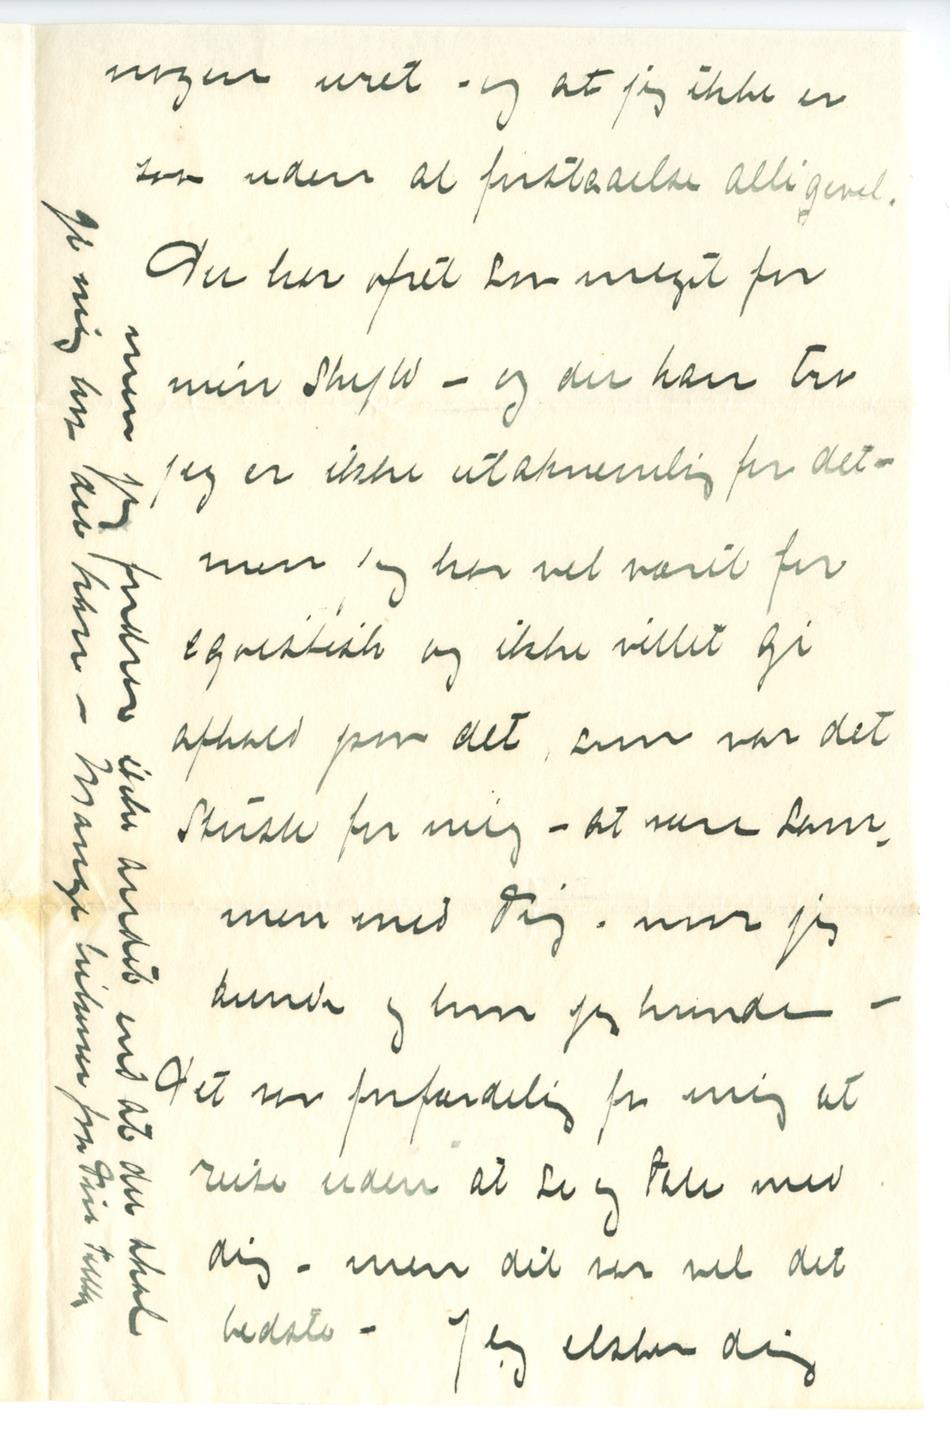 nogen uret – og at jeg ikke er
saa uden al forstaaelse alligevel.
Du har ofret saa meget for
min Skyld – og du kan tro
jeg er ikke utaknemlig for det –
men jeg har vel været for
egoistisk og ikke villet gi
afkald paa det, som var det
største for mig – at være sam-
men med Dig. naar jeg
kunde og hvor jeg kunde –
Det var forfærdelig for mig at
reise uden at se og tale med
dig – men det var vel det
bedste – Jeg elsker dig
men jeg fordrer ikke andet end at du skal
gi mig hvad du kan – Mange hilsener fra Din Tulla